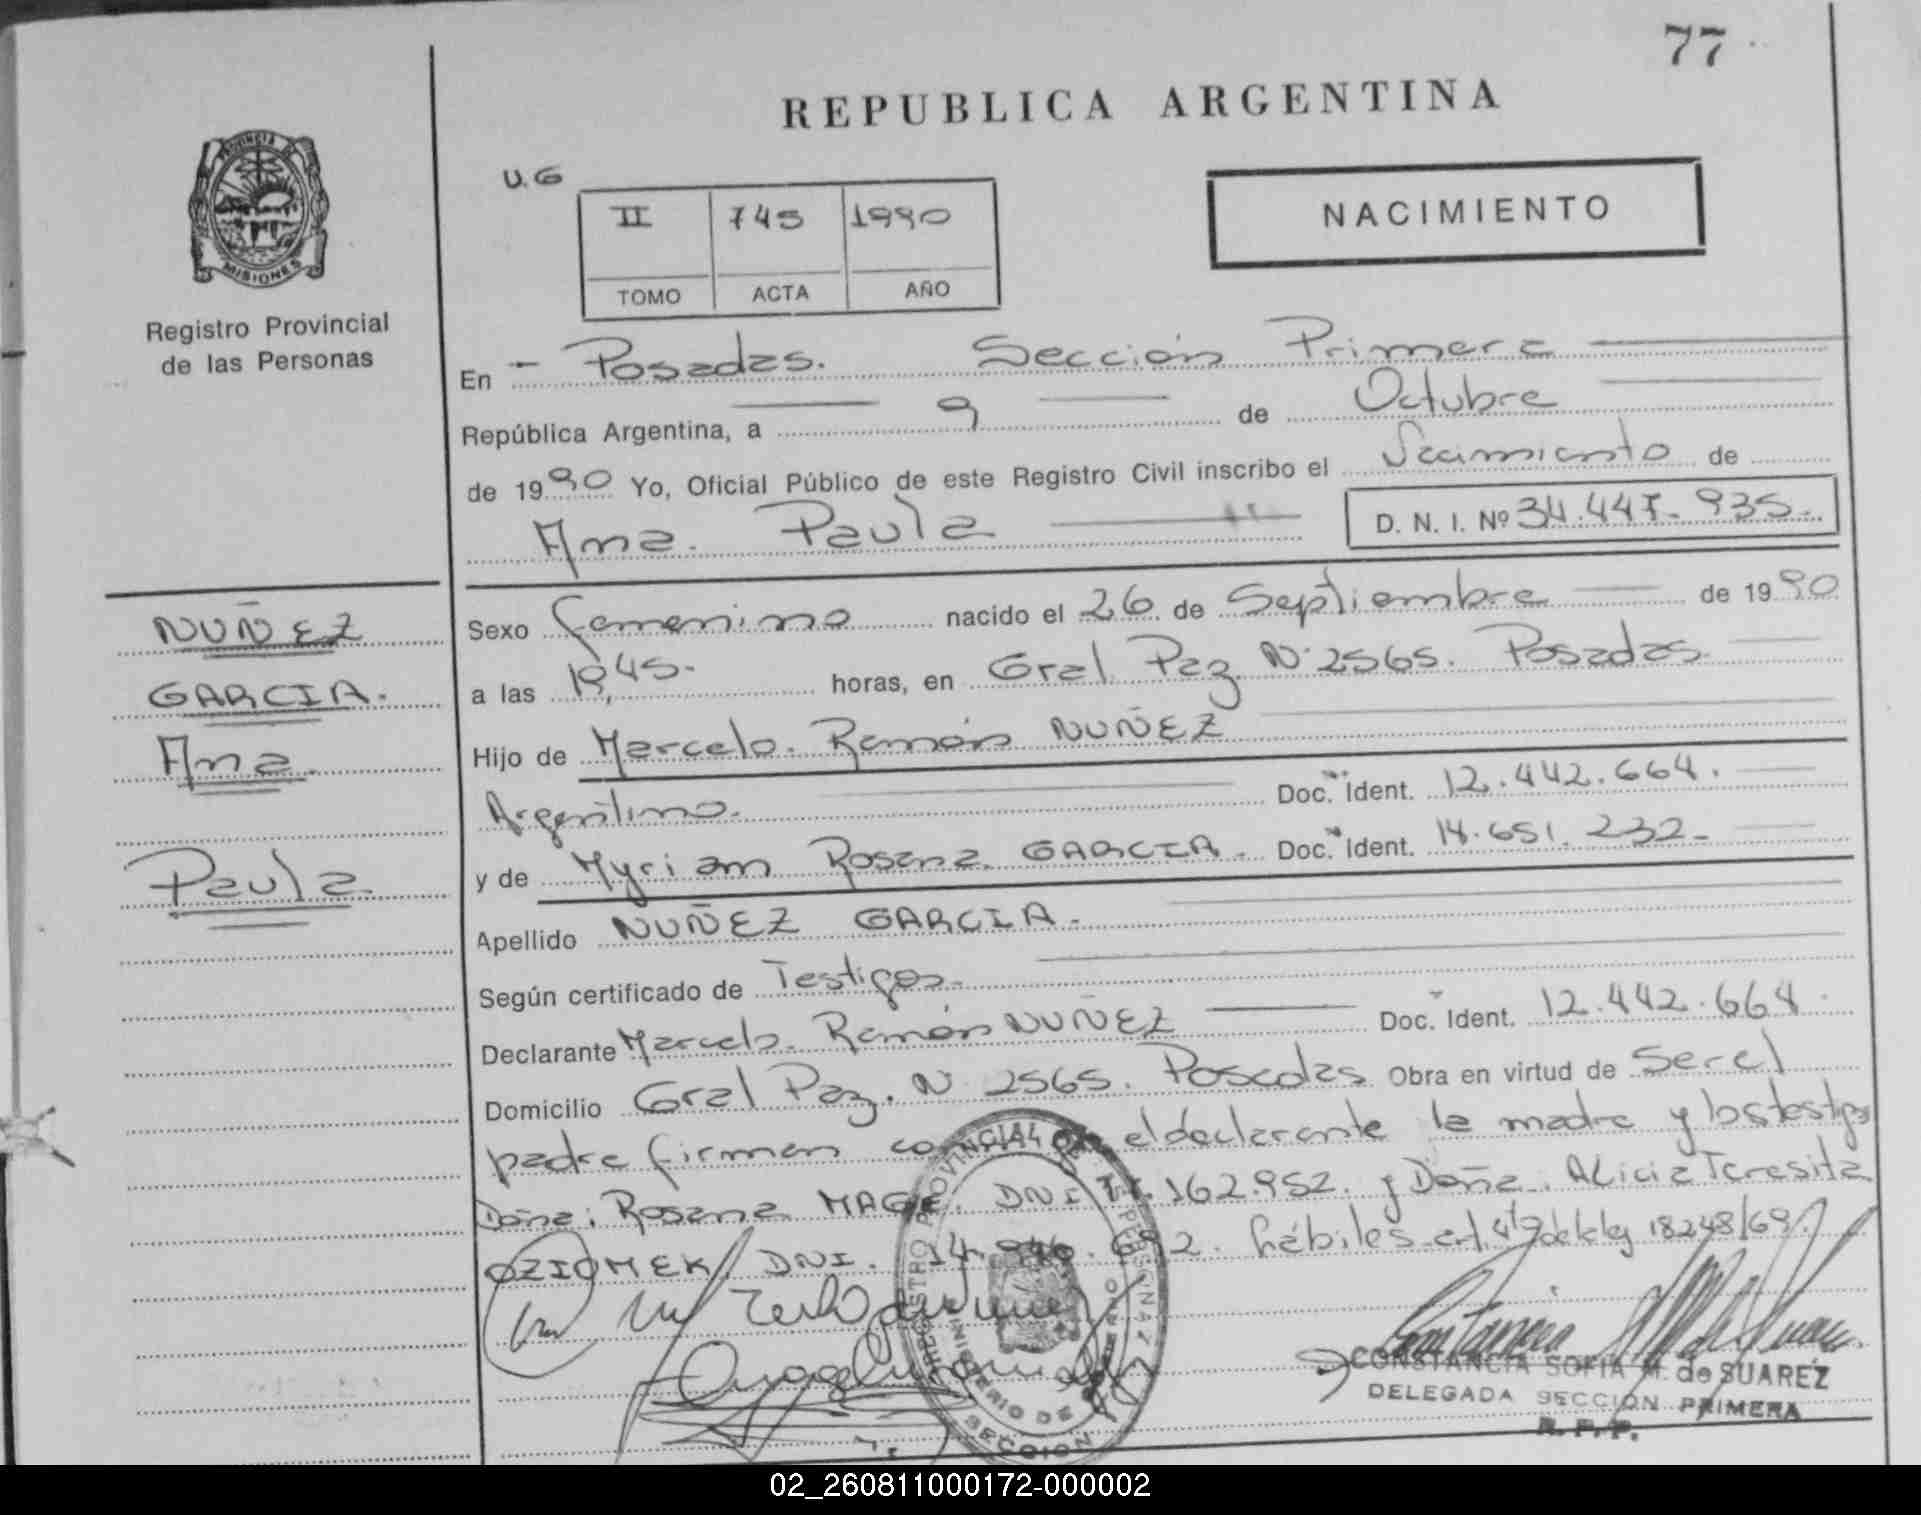 77
REPUBLICA ARGENTINA
U.G
II 745 1990
TOMO ACTA AÑO
NACIMIENTO
PROVINCIA DE
MISIONES
Registro Provincial
de las Personas
En - Posadas. Sección Primera
República Argentina, a 9 de Octubre
de 1990 Yo, Oficial Público de este Registro Civil inscribo el Nacimiento de
Ana. Paula
D. N. I. Nº 34.447.935.
NUÑEZ
GARCIA.
Ana.
Paula.
Sexo femenino nacido el 26 de Septiembre de 1990
a las 19,45. horas, en Gral Paz N. 2565. Posadas.
Hijo de Marcelo. Ramón NUÑEZ
Argentino. Doc. Ident. 12.442.664.
y de Myriam Rosana GARCIA. Doc. Ident. 14.651.232.
Apellido NUÑEZ GARCIA.
Según certificado de Testigos.
Declarante Marcelo. Ramón NUÑEZ Doc. Ident. 12.442.664.
Domicilio Gral Paz. N 2565. Posadas Obra en virtud de Ser el
padre firman con el declarante la madre y los testigos
Doña: Rosana DNI 162.952. y Doña. Alicia Teresita
OZIOMEK DNI. 14. hábiles art 4 de ley 18248/69.
CONSTANCIA SOFIA M. de SUAREZ
DELEGADA SECCION PRIMERA
R. P. P.
02_260811000172-000002